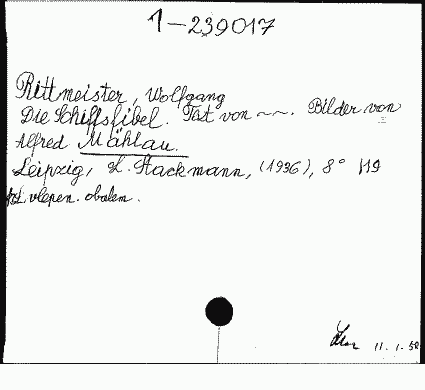 1-239017
Rittmeister, Wolfgang
Die Schiffsfibel. Text von ~~. Bilder von
Alfred Mahlau.
Leipzig, L. Stackmann, (1936), 8°
vlepen. obalem.
11.1.58